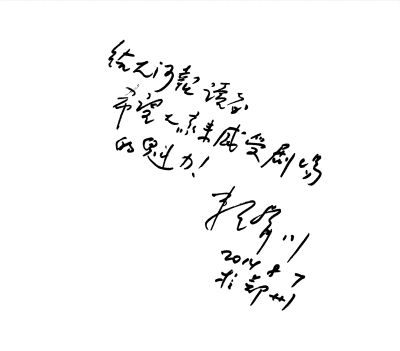 给大河报读者
希望大家来感受剧场
的魅力!
赖声川
2014 8 7
于郑州